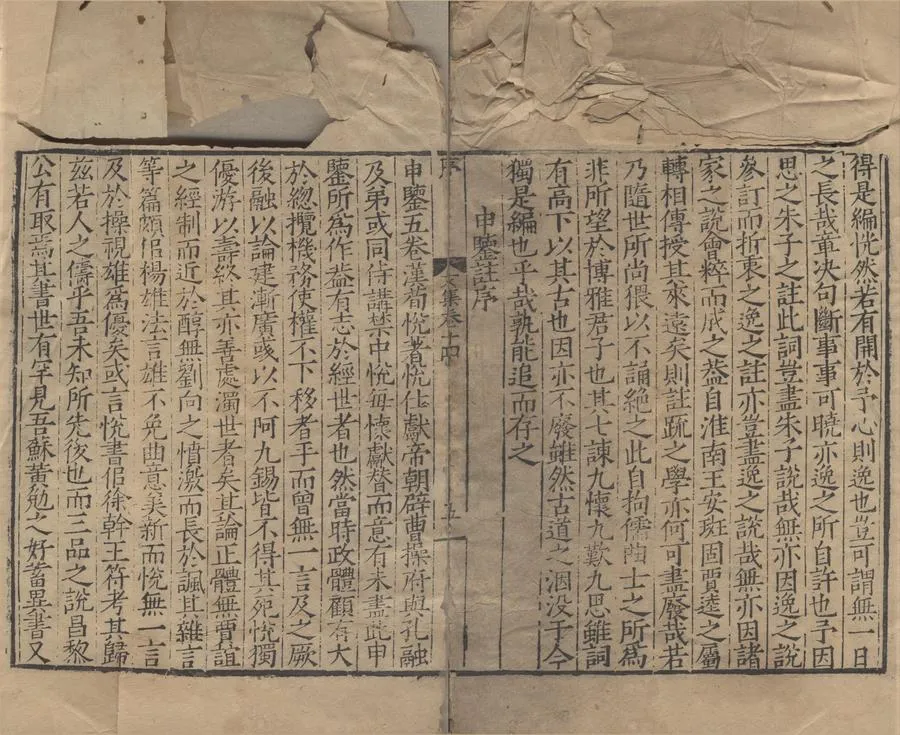 得是編恍然若有開於予心則逸也豈可謂無一日
之長哉章决句斷事事可曉亦逸之所自許也予因
思之朱子之註此詞豈盡朱子說哉無亦因逸之說
參訂而折衷之逸之註亦豈盡逸之說哉無亦因諸
家之說會粹而成之葢自淮南王安班固賈逵之屬
轉相傳授其來遠矣則註疏之學亦何可盡廢哉若
乃隨世所尚猥以不誦絶之此自拘儒曲士之所爲
非所望於博雅君子也其七諫九懷九歎九思雖詞
有高下以其古也因亦不廢雖然古道之湮没于今
獨是編也乎哉孰能追而存之
申鑒註序
序
文集卷十四
五
申鑒五卷漢荀悅著悅仕獻帝朝辟曹操府與孔融
及弟或同侍講禁中悅每懷獻替而意有未盡此申
鑒所爲作葢有志於經世者也然當時政體顧有大
於總攬機務使權不下移者乎而曾無一言及之厥
後融以論建漸廣彧以不阿九錫皆不得其死悅獨
優游以壽終其亦善處濁世者矣其論正體無賈誼
之經制而近於醇無劉向之憤激而長於諷其雜言
等篇頗似楊雄法言雄不免曲意美新而悅無一言
及於操視雄爲優矣或言悅書似徐幹王符考其歸
玆若人之儔乎吾未知所先後也而三品之說昌黎
公有取焉其書世有罕見吾蘇黄勉之好蓄異書又